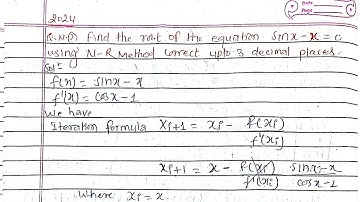 Date
Page
2024
Q.N.(7) Find the root of the equation Sinx-x=0
using N-R Method correct upto 3 decimal places.
Solⁿ
f(x) = sinx-x
f'(x) = cosx-1
We have
Iteration formula Xi+1 = xi - f(xi)
f'(xi)
xi+1 = x - f(xi) sinx-x
f'(xi) cosx-1
Where xi=x